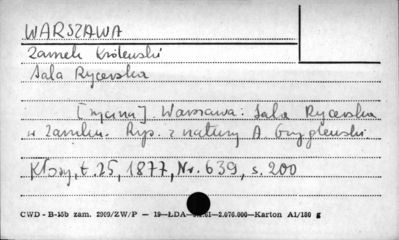 WARSZAWA
Zamek Królewski
Sala Rycerska
[rycina] Warszawa: Sala Rycerska
w Zamku. Rys. z natury A Gryglewski.
Kłosy, t. 25, 1877, Nr. 639, s. 200
CWD - B-15b zam. 2909/ZW/P — 19—ŁDA—61—2.076.000—Karton A1/180 g